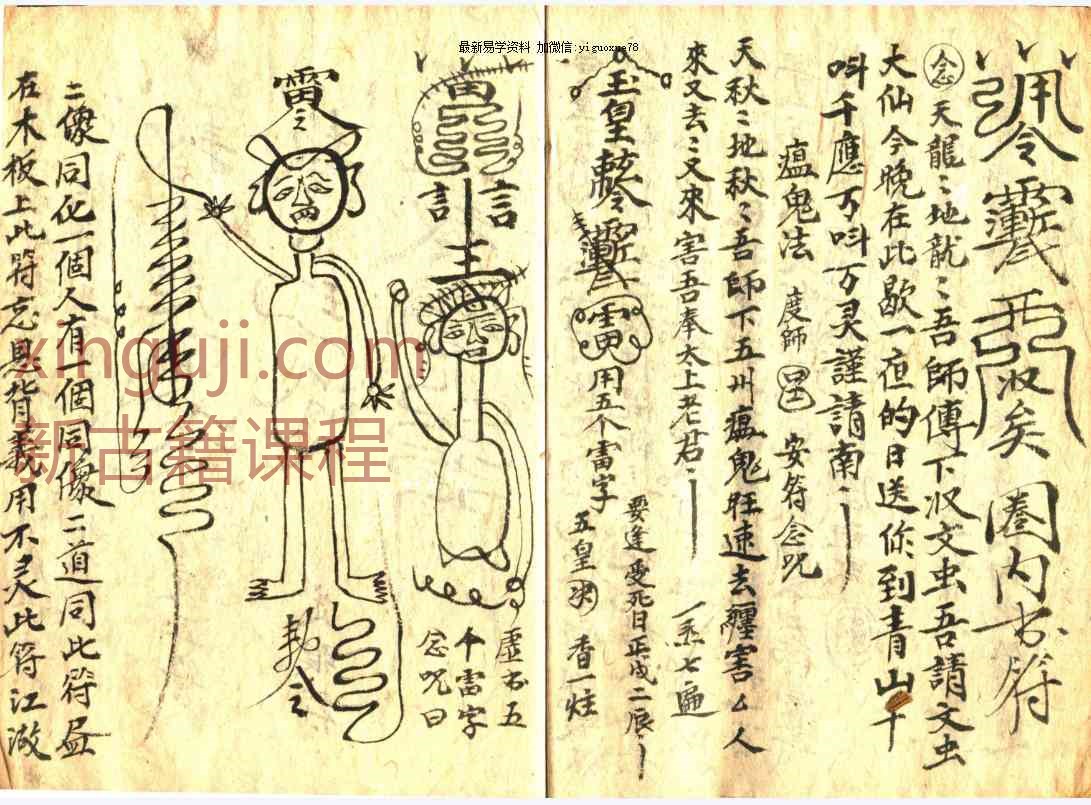 最新易学资料 加微信:yiguoxue78
令
圈内书符
念天龍〻地龍〻吾師傅下収文虫吾請文虫
大仙今晚在此歇一夜的日送你到青山十
呌千應万呌万灵謹請南〻
瘟鬼法 度師 安符念咒
天秋〻地秋〻吾師下五川瘟鬼旺速去纏害厶人
來又去〻又來害吾奉太上老君〻
一炁七遍
玉皇
雷
用五个雷字
要逢受死日正戌二辰〻
五皇决 香一炷
雷
言
言
王
虚书五
千雷字
念咒曰
雷
二像同化一個人有一個同像二道同此符昼
在木板上此符忘恩背義用不灵此符江湖
xinguji.com
新古籍课程